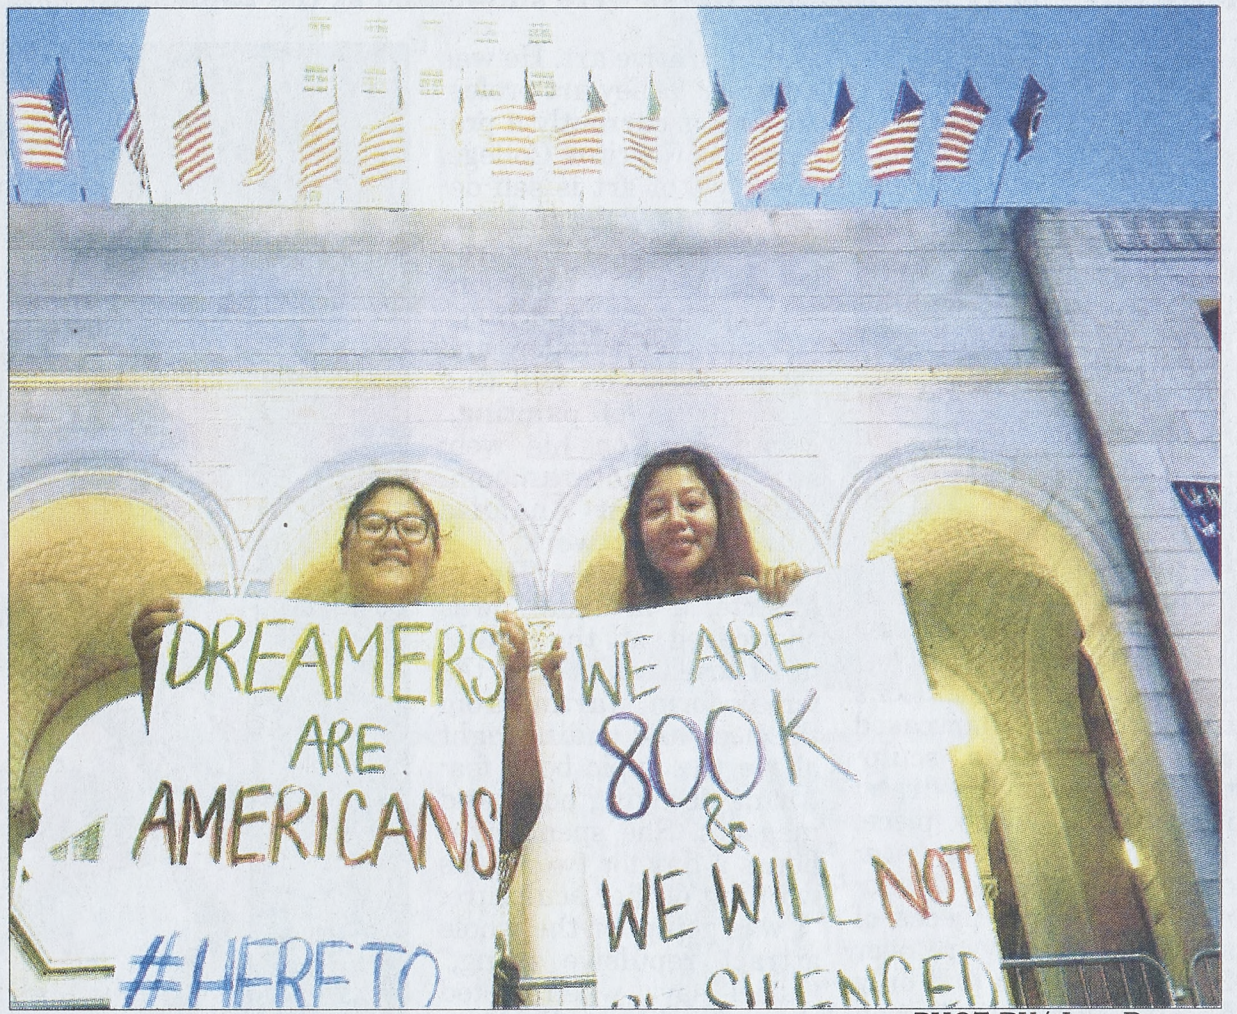 DREAMERS
ARE
AMERICANS
#HERE TO
WE ARE
800K
&
WE WILL NOT
SILENCED